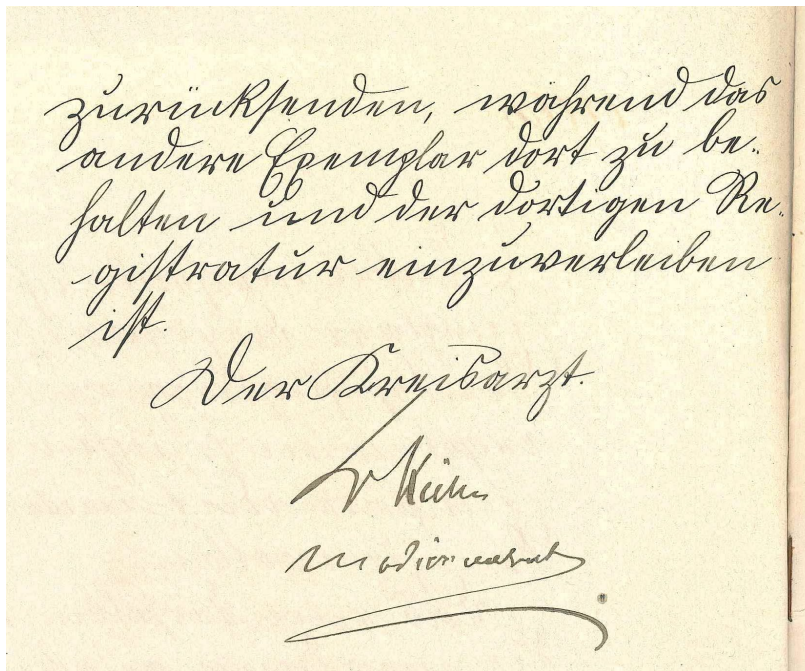 zurücksenden, während das
andere Exemplar dort zu be-
halten und der dortigen Re-
gistratur einzuverleiben
ist.
Der Kreisarzt.
Dr Kühn
Medizinalrat